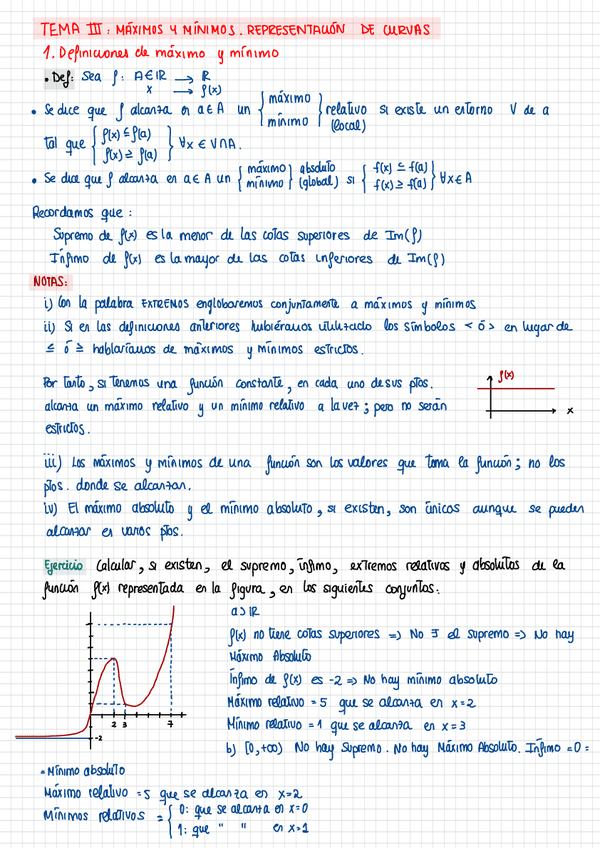 TEMA III: MÁXIMOS Y MÍNIMOS. REPRESENTACIÓN DE CURVAS
1. Definiciones de máximo y mínimo
• Def: Sea f: A∈ℝ → ℝ
x → f(x)
• Se dice que f alcanza en a∈A un { máximo / mínimo } relativo (local) si existe un entorno V de a
tal que { f(x) ≤ f(a) / f(x) ≥ f(a) } ∀x ∈ V∩A.
• Se dice que f alcanza en a∈A un { máximo / mínimo } absoluto (global) si { f(x) ≤ f(a) / f(x) ≥ f(a) } ∀x∈A
Recordamos que:
Supremo de f(x) es la menor de las cotas superiores de Im(f)
Ínfimo de f(x) es la mayor de las cotas inferiores de Im(f)
NOTAS:
i) Con la palabra EXTREMOS englobaremos conjuntamente a máximos y mínimos
ii) Si en las definiciones anteriores hubiéramos utilizado los símbolos < ó > en lugar de
≤ ó ≥ hablaríamos de máximos y mínimos estrictos.
Por tanto, si tenemos una función constante, en cada uno de sus ptos.
alcanza un máximo relativo y un mínimo relativo a la vez; pero no serán
estrictos.
f(x)
x
iii) Los máximos y mínimos de una función son los valores que toma la función; no los
ptos. donde se alcanzan.
iv) El máximo absoluto y el mínimo absoluto, si existen, son únicos aunque se pueden
alcanzar en varios ptos.
Ejercicio Calcular, si existen, el supremo, ínfimo, extremos relativos y absolutos de la
función f(x) representada en la figura, en los siguientes conjuntos:
2 3 7
-2
a) ℝ
f(x) no tiene cotas superiores => No ∃ el supremo => No hay
Máximo Absoluto
Ínfimo de f(x) es -2 => No hay mínimo absoluto
Máximo relativo = 5 que se alcanza en x=2
Mínimo relativo = 1 que se alcanza en x=3
b) [0,+∞) No hay Supremo. No hay Máximo Absoluto. Ínfimo = 0 =
= Mínimo absoluto
Máximo relativo = 5 que se alcanza en x=2
Mínimos relativos = { 0: que se alcanza en x=0
1: que " " en x=1